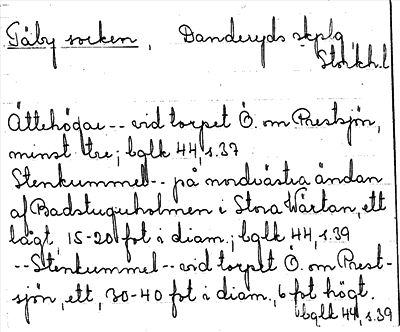 Täby socken, Danderyds skplg
Stockh.l
Ättehögar -- vid torpet Ö. om Prestsjön,
minst tre; bglk 44, s.37
Stenkummel -- på nordvästra ändan
af Badstuguholmen i Stora Wärtan, ett
lågt, 15-20 fot i diam.; bglk 44, s.39
-- Stenkummel -- vid torpet Ö. om Prest-
sjön, ett, 30-40 fot i diam., 6 fot högt.
bglk 44, s.39